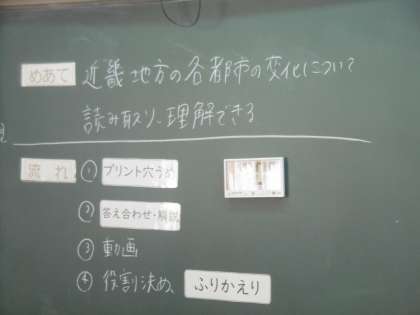 めあて 近畿地方の各都市の変化について
読み取り、理解できる
流れ ① プリント穴うめ
② 答え合わせ・解説
③ 動画
④ 役割決め、ふりかえり